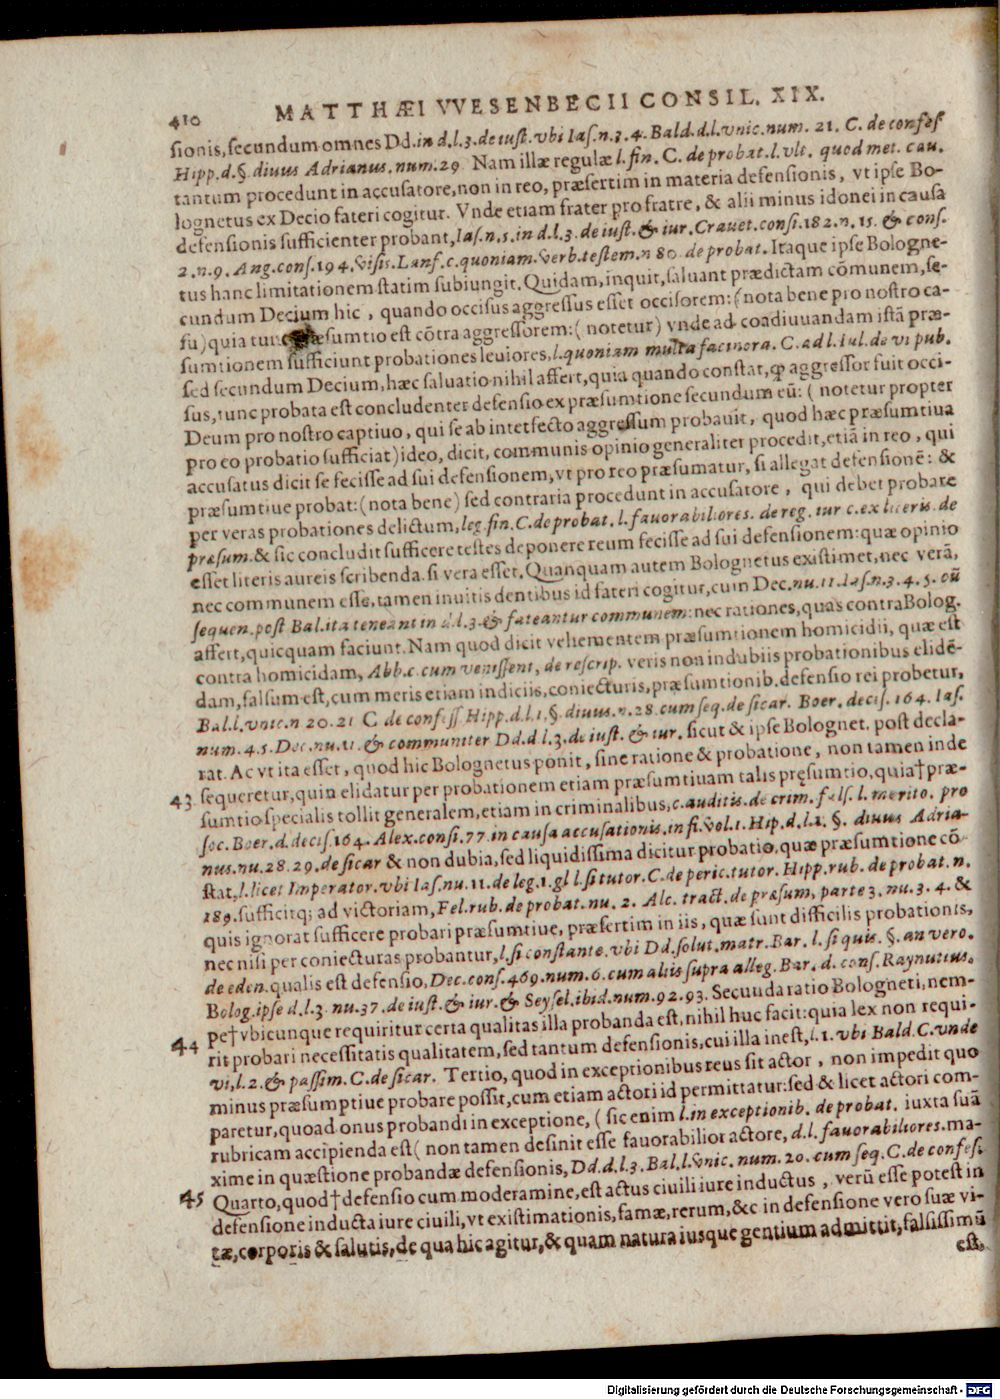 410 MATTHÆI VVESENBECII CONSIL. XIX.
sionis, secundum omnes Dd. in d.l.3. de iust. vbi Ias. n. 3. 4. Bald. d.l. vnic. num. 21. C. de confes
Hipp. d. §. diuus Adrianus. num. 29. Nam illæ regulæ l. fin. C. de probat. l. vlt. quod met. cau.
tantum procedunt in accusatore, non in reo, præsertim in materia defensionis, vt ipse Bo-
lognetus ex Decio fateri cogitur. Vnde etiam frater pro fratre, & alii minus idonei in causa
defensionis sufficienter probant, Ias. n. 5. in d.l. 3. de iust. & iur. Crauet. consi. 182. n. 15. & cons.
2. n. 9. Ang. cons. 194. Visis. Lanf. c. quoniam. Verb. testem. n 80. de probat. Itaque ipse Bologne-
tus hanc limitationem statim subiungit. Quidam, inquit, saluant prædictam cõmunem, se-
cundum Decium hic, quando occisus aggressus esset occisorem: (nota bene pro nostro ca-
su) quia tunc præsumtio est cõtra aggressorem: (notetur) vnde ad coadiuuandam istã præ-
sumtionem sufficiunt probationes leuiores, l. quoniam multa facinora. C. ad l. Iul. de vi pub.
sed secundum Decium, hæc saluatio nihil affert, quia quando constat, ꝙ aggressor fuit occi-
sus, tunc probata est concludenter defensio ex præsumtione secundum eũ: (notetur propter
Deum pro nostro captiuo, qui se ab interfecto aggressum probauit, quod hæc præsumtiua
pro eo probatio sufficiat) ideo, dicit, communis opinio generaliter procedit, etiã in reo, qui
accusatus dicit se fecisse ad sui defensionem, vt pro reo præsumatur, si allegat defensionẽ: &
præsumtiue probat: (nota bene) sed contraria procedunt in accusatore, qui debet probare
per veras probationes delictum, leg. fin. C. de probat. l. fauorabiliores. de reg. iur c. ex literis. de
præsum. & sic concludit sufficere testes deponere reum fecisse ad sui defensionem: quæ opinio
esset literis aureis scribenda. si vera esset. Quanquam autem Bolognetus existimet, nec verã,
nec communem esse, tamen inuitis dentibus id fateri cogitur, cum Dec. nu. 11. Ias. n. 3. 4. 5. cũ
sequen. post Bal. ita teneant in d.l. 3. & fateantur communem: nec rationes, quas contra Bolog.
affert, quicquam faciunt. Nam quod dicit vehementem præsumtionem homicidii, quæ est
contra homicidam, Abb. c. cum venissent, de rescrip. veris non indubiis probationibus elidẽ-
dam, falsum est, cum meris etiam indiciis, coniecturis, præsumtionib. defensio rei probetur,
Bal. l. vnic. n 20. 21 C de confess Hipp. d.l. 1. §. diuus. n. 28. cum seq. de sicar. Boer. decis. 164. Ias.
num. 4. 5. Dec. nu. 11. & communiter Dd. d l. 3. de iust. & iur. sicut & ipse Bolognet. post decla-
rat. Ac vt ita esset, quod hic Bolognetus ponit, sine ratione & probatione, non tamen inde
43 sequeretur, quin elidatur per probationem etiam præsumtiuam talis pręsumtio, quia† præ-
sumtio specialis tollit generalem, etiam in criminalibus, c. auditis. de crim. fals. l. merito. pro
soc. Boer. d. decis. 164. Alex. consi. 77. in causa accusationis. in fi. Vol. 1. Hip. d. l. 1. §. diuus Adria-
nus. nu. 28. 29. de sicar & non dubia, sed liquidissima dicitur probatio, quæ præsumtione cõ-
stat, l. licet Imperator. vbi Ias. nu. 11. de leg. 1. gl l. si tutor. C. de peric. tutor. Hipp. rub. de probat. n.
189. sufficitq; ad victoriam, Fel. rub. de probat. nu. 2. Alc. tract. de præsum, parte 3. nu. 3. 4. &
quis ignorat sufficere probari præsumtiue, præsertim in iis, quæ sunt difficilis probationis,
nec nisi per coniecturas probantur, l. si constante. vbi Dd. solut. matr. Bar. l. si quis. §. an vero.
de eden. qualis est defensio, Dec. cons. 469. num. 6. cum aliis supra alleg. Bar. d. cons. Raynutius.
Bolog. ipse d.l. 3. nu. 37. de iust. & iur. & Seysel. ibid. num. 92. 93. Secunda ratio Bologneti, nem-
44 pe† vbicunque requiritur certa qualitas illa probanda est, nihil huc facit: quia lex non requi-
rit probari necessitatis qualitatem, sed tantum defensionis, cui illa inest, l. 1. vbi Bald. C. vnde
vi, l. 2. & passim. C. de sicar. Tertio, quod in exceptionibus reus sit actor, non impedit quo
minus præsumptiue probare possit, cum etiam actori id permittatur: sed & licet actori com-
paretur, quoad onus probandi in exceptione, (sic enim l. in exceptionib. de probat. iuxta suã
rubricam accipienda est( non tamen desinit esse fauorabilior actore, d. l. fauorabiliores. ma-
xime in quæstione probandæ defensionis, Dd. d. l. 3. Bal. l. vnic. num. 20. cum seq. C. de confes.
45 Quarto, quod† defensio cum moderamine, est actus ciuili iure inductus, verũ esse potest in
defensione inducta iure ciuili, vt existimationis, famæ, rerum, &c in defensione vero suæ vi-
tæ, corporis & salutis, de qua hic agitur, & quam natura iusque gentium admittit, falsissimũ
est,
Digitalisierung gefördert durch die Deutsche Forschungsgemeinschaft - DFG